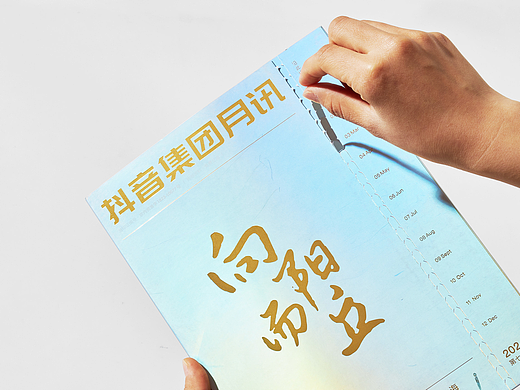 抖音集团月讯
向阳
而立
03 Mar
04 Apr
05 May
06 Jun
07 Jul
08 Aug
09 Sept
10 Oct
11 Nov
12 Dec
202